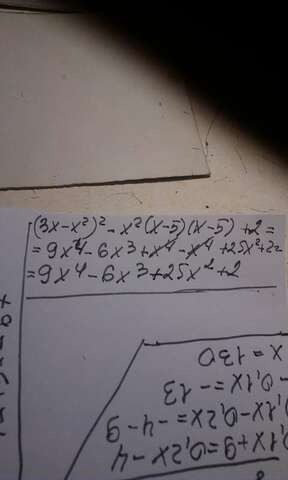 (3x-x²)² - x²(x-5)(x-5) +2 =
= 9x⁴ - 6x3 + x⁴ - x⁴ + 25x² + 2 =
= 9x4 - 6x3 + 25x² + 2
0,1x+9=0,2x-4
0,1x-0,2x=-4-9
-0,1x=-13
x=130